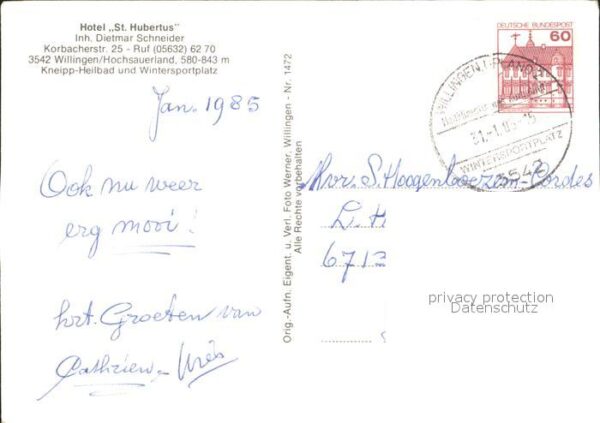 Hotel „St. Hubertus"
Inh. Dietmar Schneider
Korbacherstr. 25 - Ruf (05632) 62 70
3542 Willingen/Hochsauerland, 580-843 m
Kneipp-Heilbad und Wintersportplatz
Jan. 1985
Ook nu weer
erg mooi!
hrt. Groeten van
Orig.-Aufn. Eigent. u. Verl. Foto Werner, Willingen - Nr. 1472
Alle Rechte vorbehalten
DEUTSCHE BUNDESPOST
60
WILLINGEN, UPLAND
WINTERSPORTPLATZ
3542
Mvr. S. Hoogenboezem-Cordes
L. H
6713
privacy protection
Datenschutz